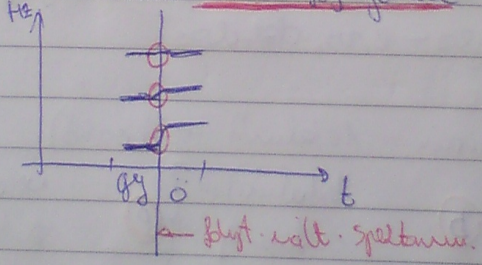 Hz
gy ö t
folyt. vált. spektrum.